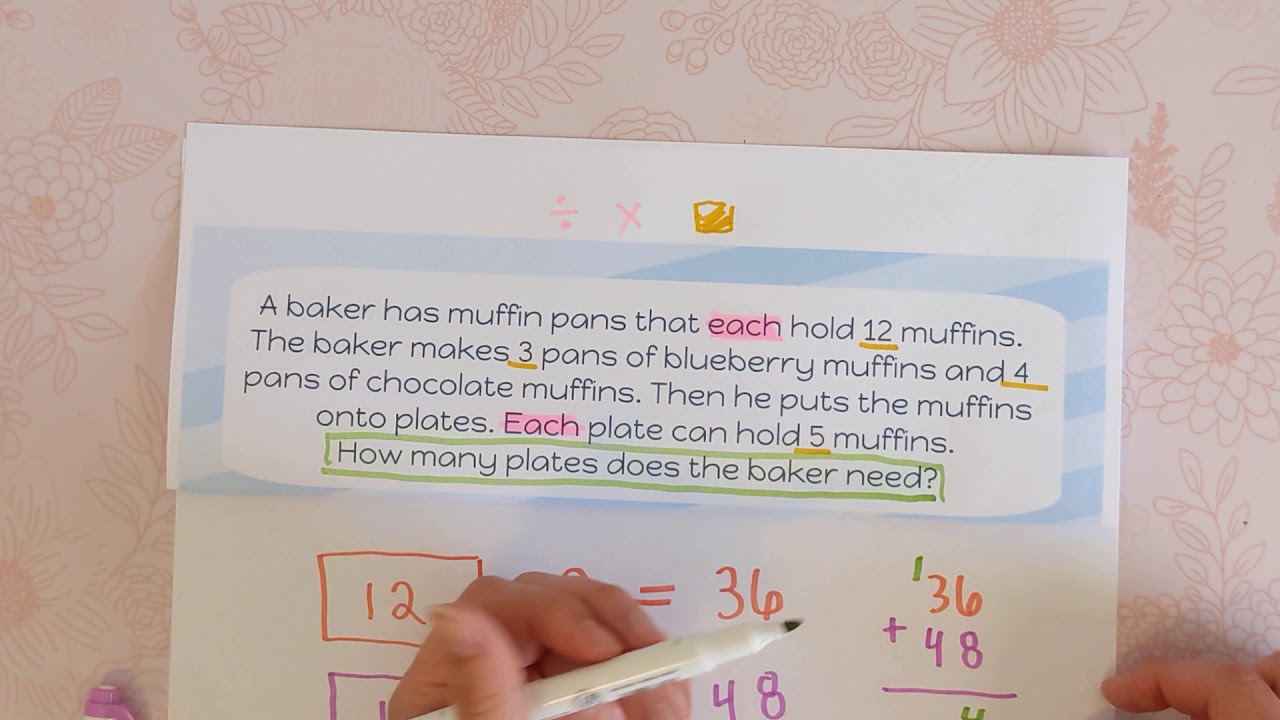 ÷ ×
A baker has muffin pans that each hold 12 muffins.
The baker makes 3 pans of blueberry muffins and 4
pans of chocolate muffins. Then he puts the muffins
onto plates. Each plate can hold 5 muffins.
How many plates does the baker need?
12 = 36
48
1
36
+ 48